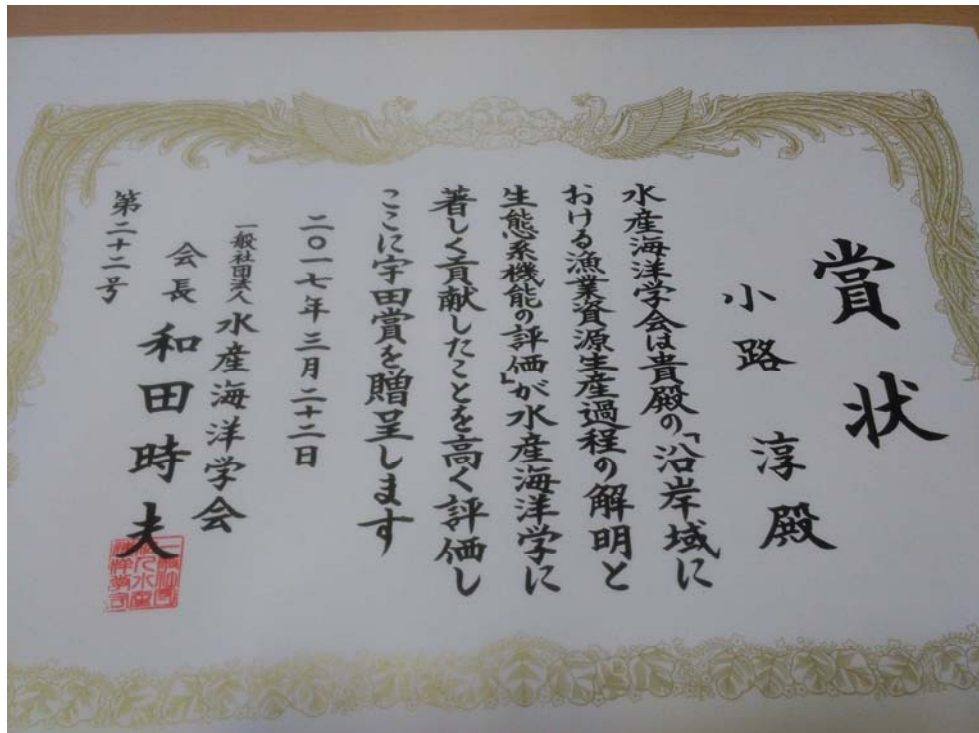 賞状
小路 淳殿
水産海洋学会は貴殿の「沿岸域に
おける漁業資源生産過程の解明と
生態系機能の評価」が水産海洋学に
著しく貢献したことを高く評価し
ここに宇田賞を贈呈します
二〇一七年三月二十二日
一般社団法人水産海洋学会
会長 和田時夫
第二十二号